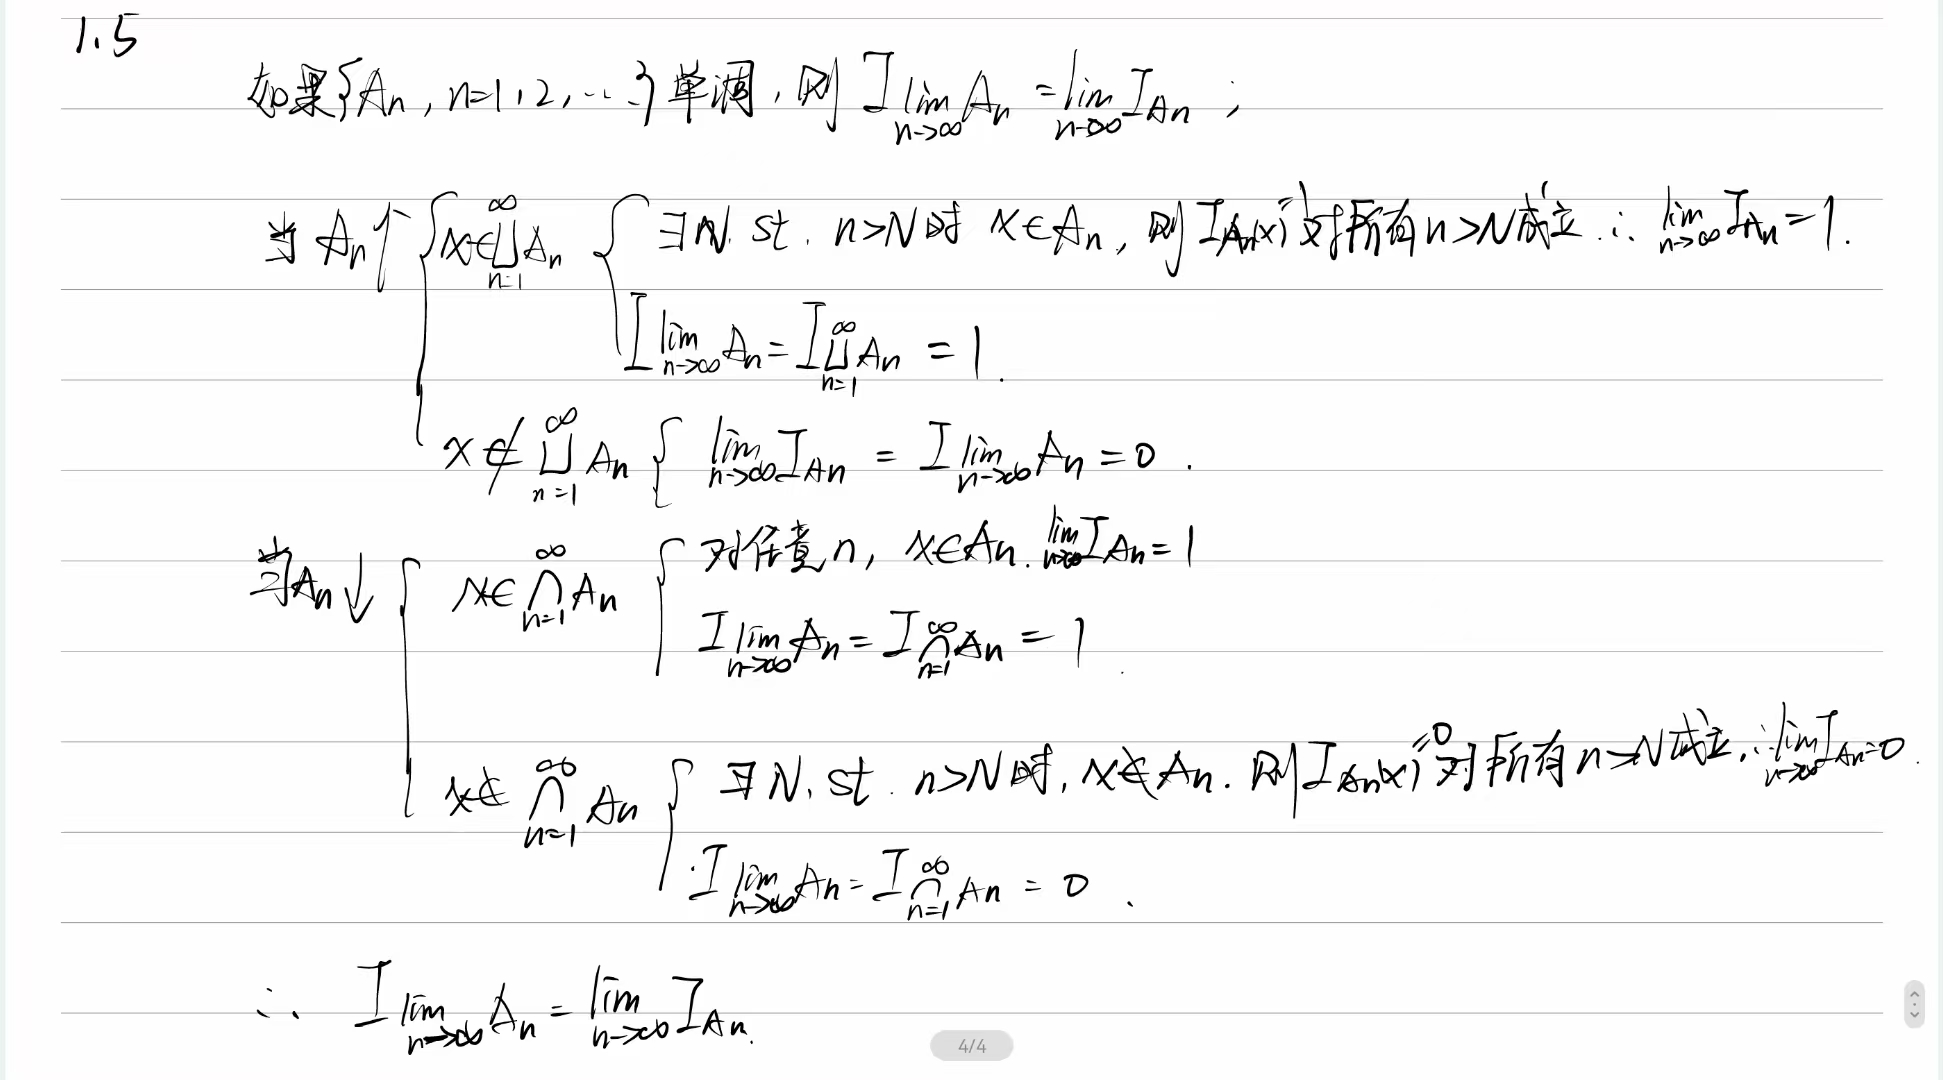 1.5
如果{Aₙ, n=1,2,...}单调, 则 I_{lim_{n→∞} Aₙ} = lim_{n→∞} I_{Aₙ} ;
当 Aₙ↑ { x∈⋃_{n=1}^{∞} Aₙ { ∃N. st. n>N时 x∈Aₙ, 则 I_{Aₙ}(x)=1 对所有n>N成立. ∴ lim_{n→∞} I_{Aₙ}=1.
I_{lim_{n→∞} Aₙ} = I_{⋃_{n=1}^{∞} Aₙ} = 1.
x∉⋃_{n=1}^{∞} Aₙ { lim_{n→∞} I_{Aₙ} = I_{lim_{n→∞} Aₙ} = 0.
当Aₙ↓ { x∈⋂_{n=1}^{∞} Aₙ { 对任意n, x∈Aₙ. lim_{n→∞} I_{Aₙ}=1
I_{lim_{n→∞} Aₙ} = I_{⋂_{n=1}^{∞} Aₙ} = 1.
x∉⋂_{n=1}^{∞} Aₙ { ∃N. st. n>N时, x∉Aₙ. 则 I_{Aₙ}(x)=0 对所有n>N成立. ∴ lim_{n→∞} I_{Aₙ}=0.
I_{lim_{n→∞} Aₙ} = I_{⋂_{n=1}^{∞} Aₙ} = 0.
∴ I_{lim_{n→∞} Aₙ} = lim_{n→∞} I_{Aₙ}.
4/4